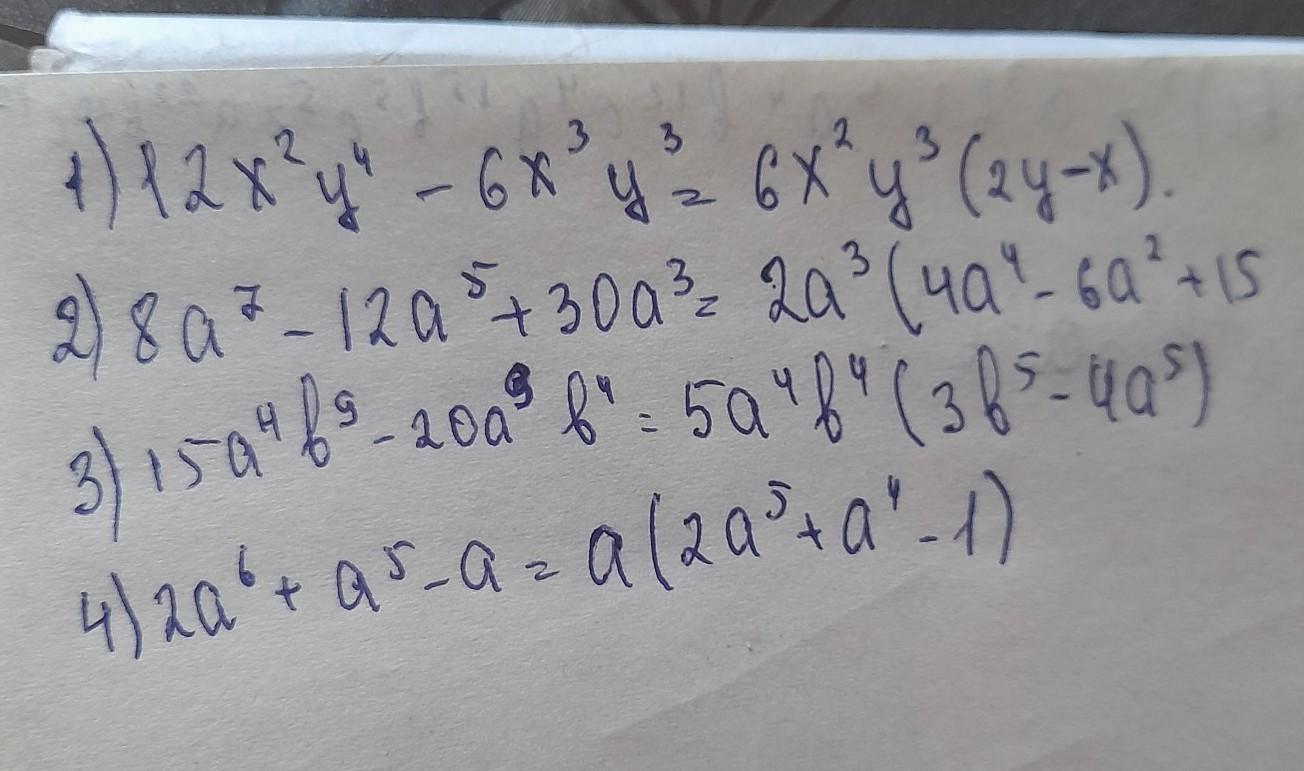 1) 12x²y⁴ - 6x³y³ = 6x²y³(2y-x).
2) 8a⁷ - 12a⁵ + 30a³ = 2a³(4a⁴ - 6a² + 15
3) 15a⁴b⁹ - 20a⁹b⁴ = 5a⁴b⁴(3b⁵ - 4a⁵)
4) 2a⁶ + a⁵ - a = a(2a⁵ + a⁴ - 1)